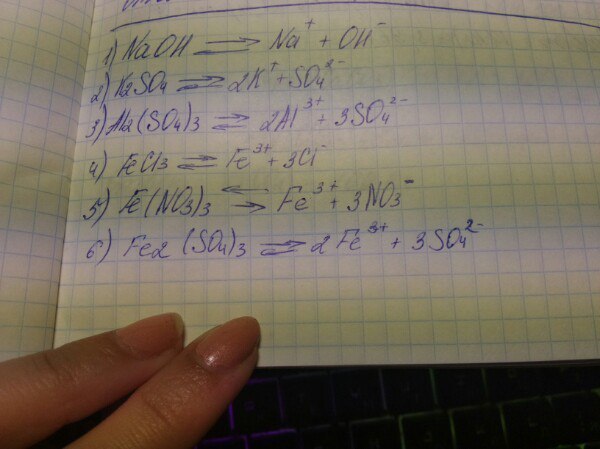 1) NaOH ⇌ Na⁺ + OH⁻
2) K2SO4 ⇌ 2K⁺ + SO4²⁻
3) Al2(SO4)3 ⇌ 2Al³⁺ + 3SO4²⁻
4) FeCl3 ⇌ Fe³⁺ + 3Cl⁻
5) Fe(NO3)3 ⇌ Fe³⁺ + 3NO3⁻
6) Fe2(SO4)3 ⇌ 2Fe³⁺ + 3SO4²⁻